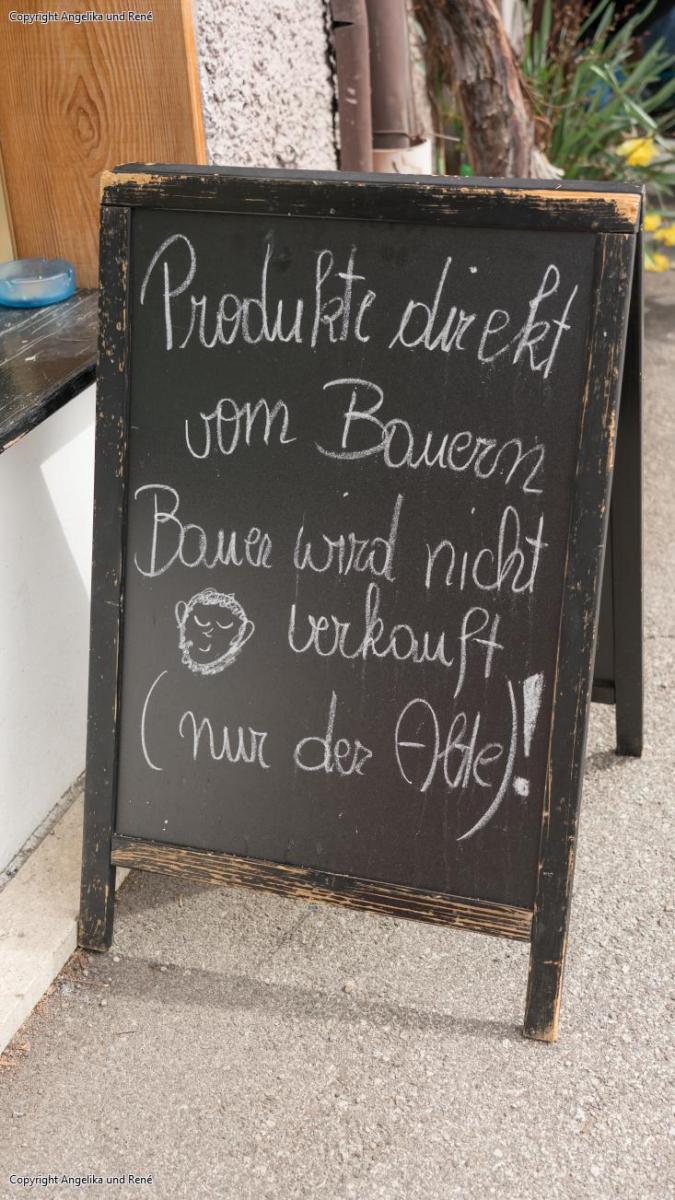 Copyright Angelika und René
Produkte direkt
vom Bauern
Bauer wird nicht
verkauft
(nur der Alte)!
Copyright Angelika und René